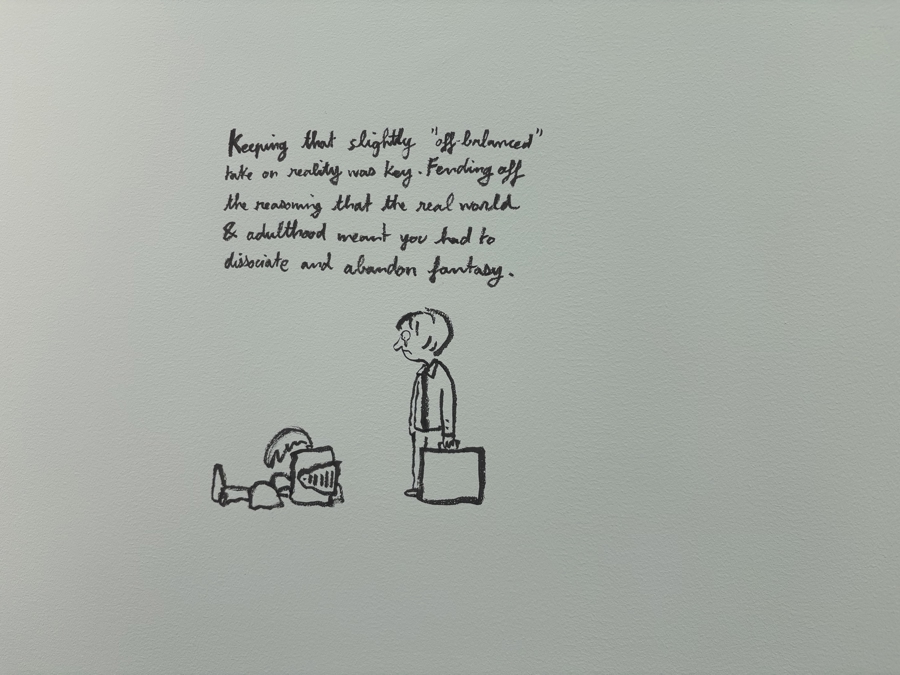 Keeping that slightly "off-balanced"
take on reality was key. Fending off
the reasoning that the real world
& adulthood meant you had to
dissociate and abandon fantasy.